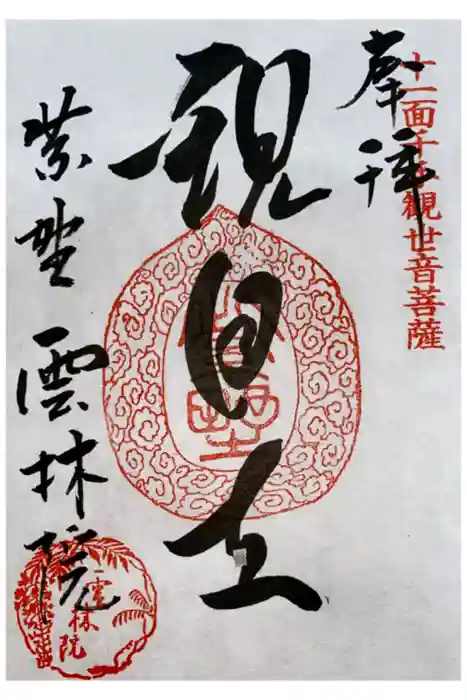 奉拝
十一面千手觀世音菩薩
観自在
紫野 雲林院
雲林院